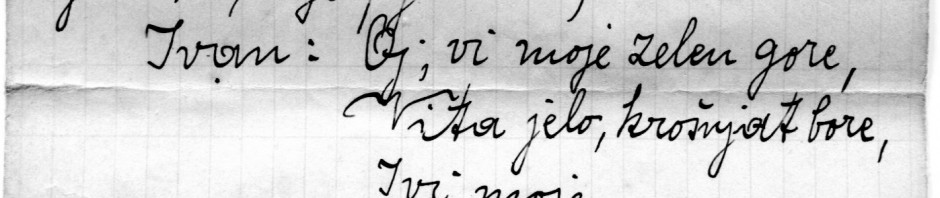 Ivan: Oj, vi moje zelen gore,
Vita jelo, krošnjat bore,
I vi moje